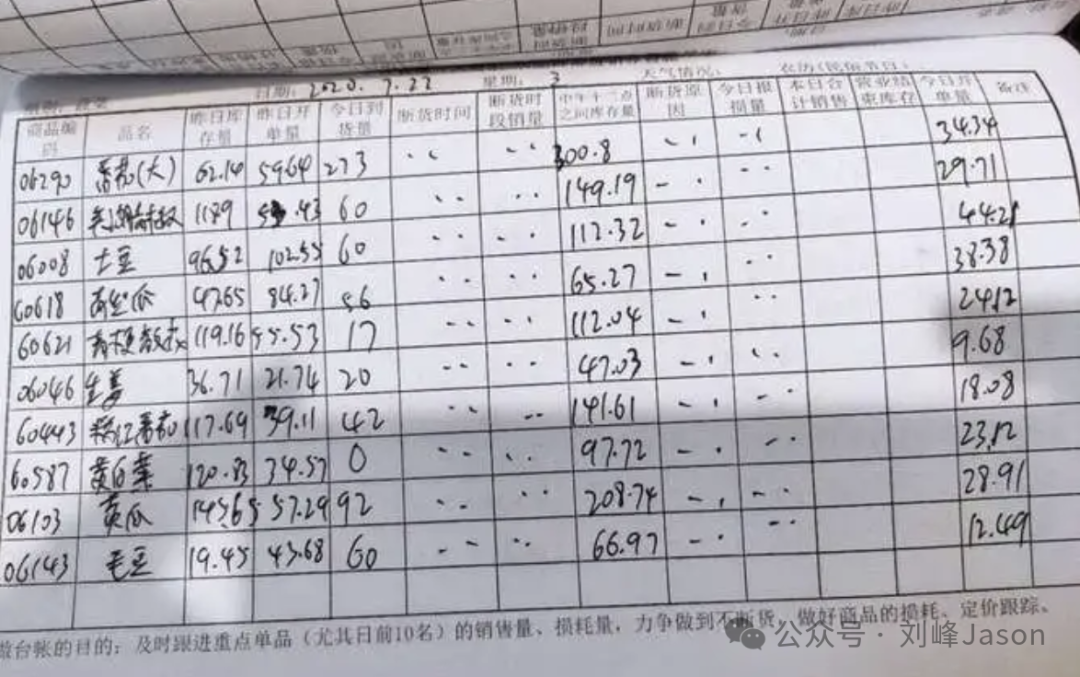 日期: 2020. 7.22 星期: 3 天气情况: 农历(民俗节日):
商品编码 品名 昨日库存量 昨日开单量 今日到货量 断货时间 断货时段销量 中午十二点之间库存量 断货原因 今日报损量 本日合计销售 营业结束库存 今日开单量 备注
06290 番茄(大) 62.14 59.64 273 300.8 34.34
06146 60 149.19 29.71
06008 土豆 96.52 102.55 60 112.32 44.21
60618 47.65 84.27 56 65.27 38.38
60621 119.16 55.53 17 112.04 24.12
06046 生姜 36.71 21.74 20 47.03 9.68
60443 117.69 39.11 42 141.61 18.08
60587 黄白菜 120.83 34.57 0 97.72 23.12
06103 黄瓜 145.65 57.29 92 208.74 28.91
06143 毛豆 19.45 43.68 60 66.97 12.49
做台帐的目的: 及时跟进重点单品(尤其日前10名)的销售量、损耗量,力争做到不断货,做好商品的损耗、定价跟踪、
公众号 · 刘峰Jason